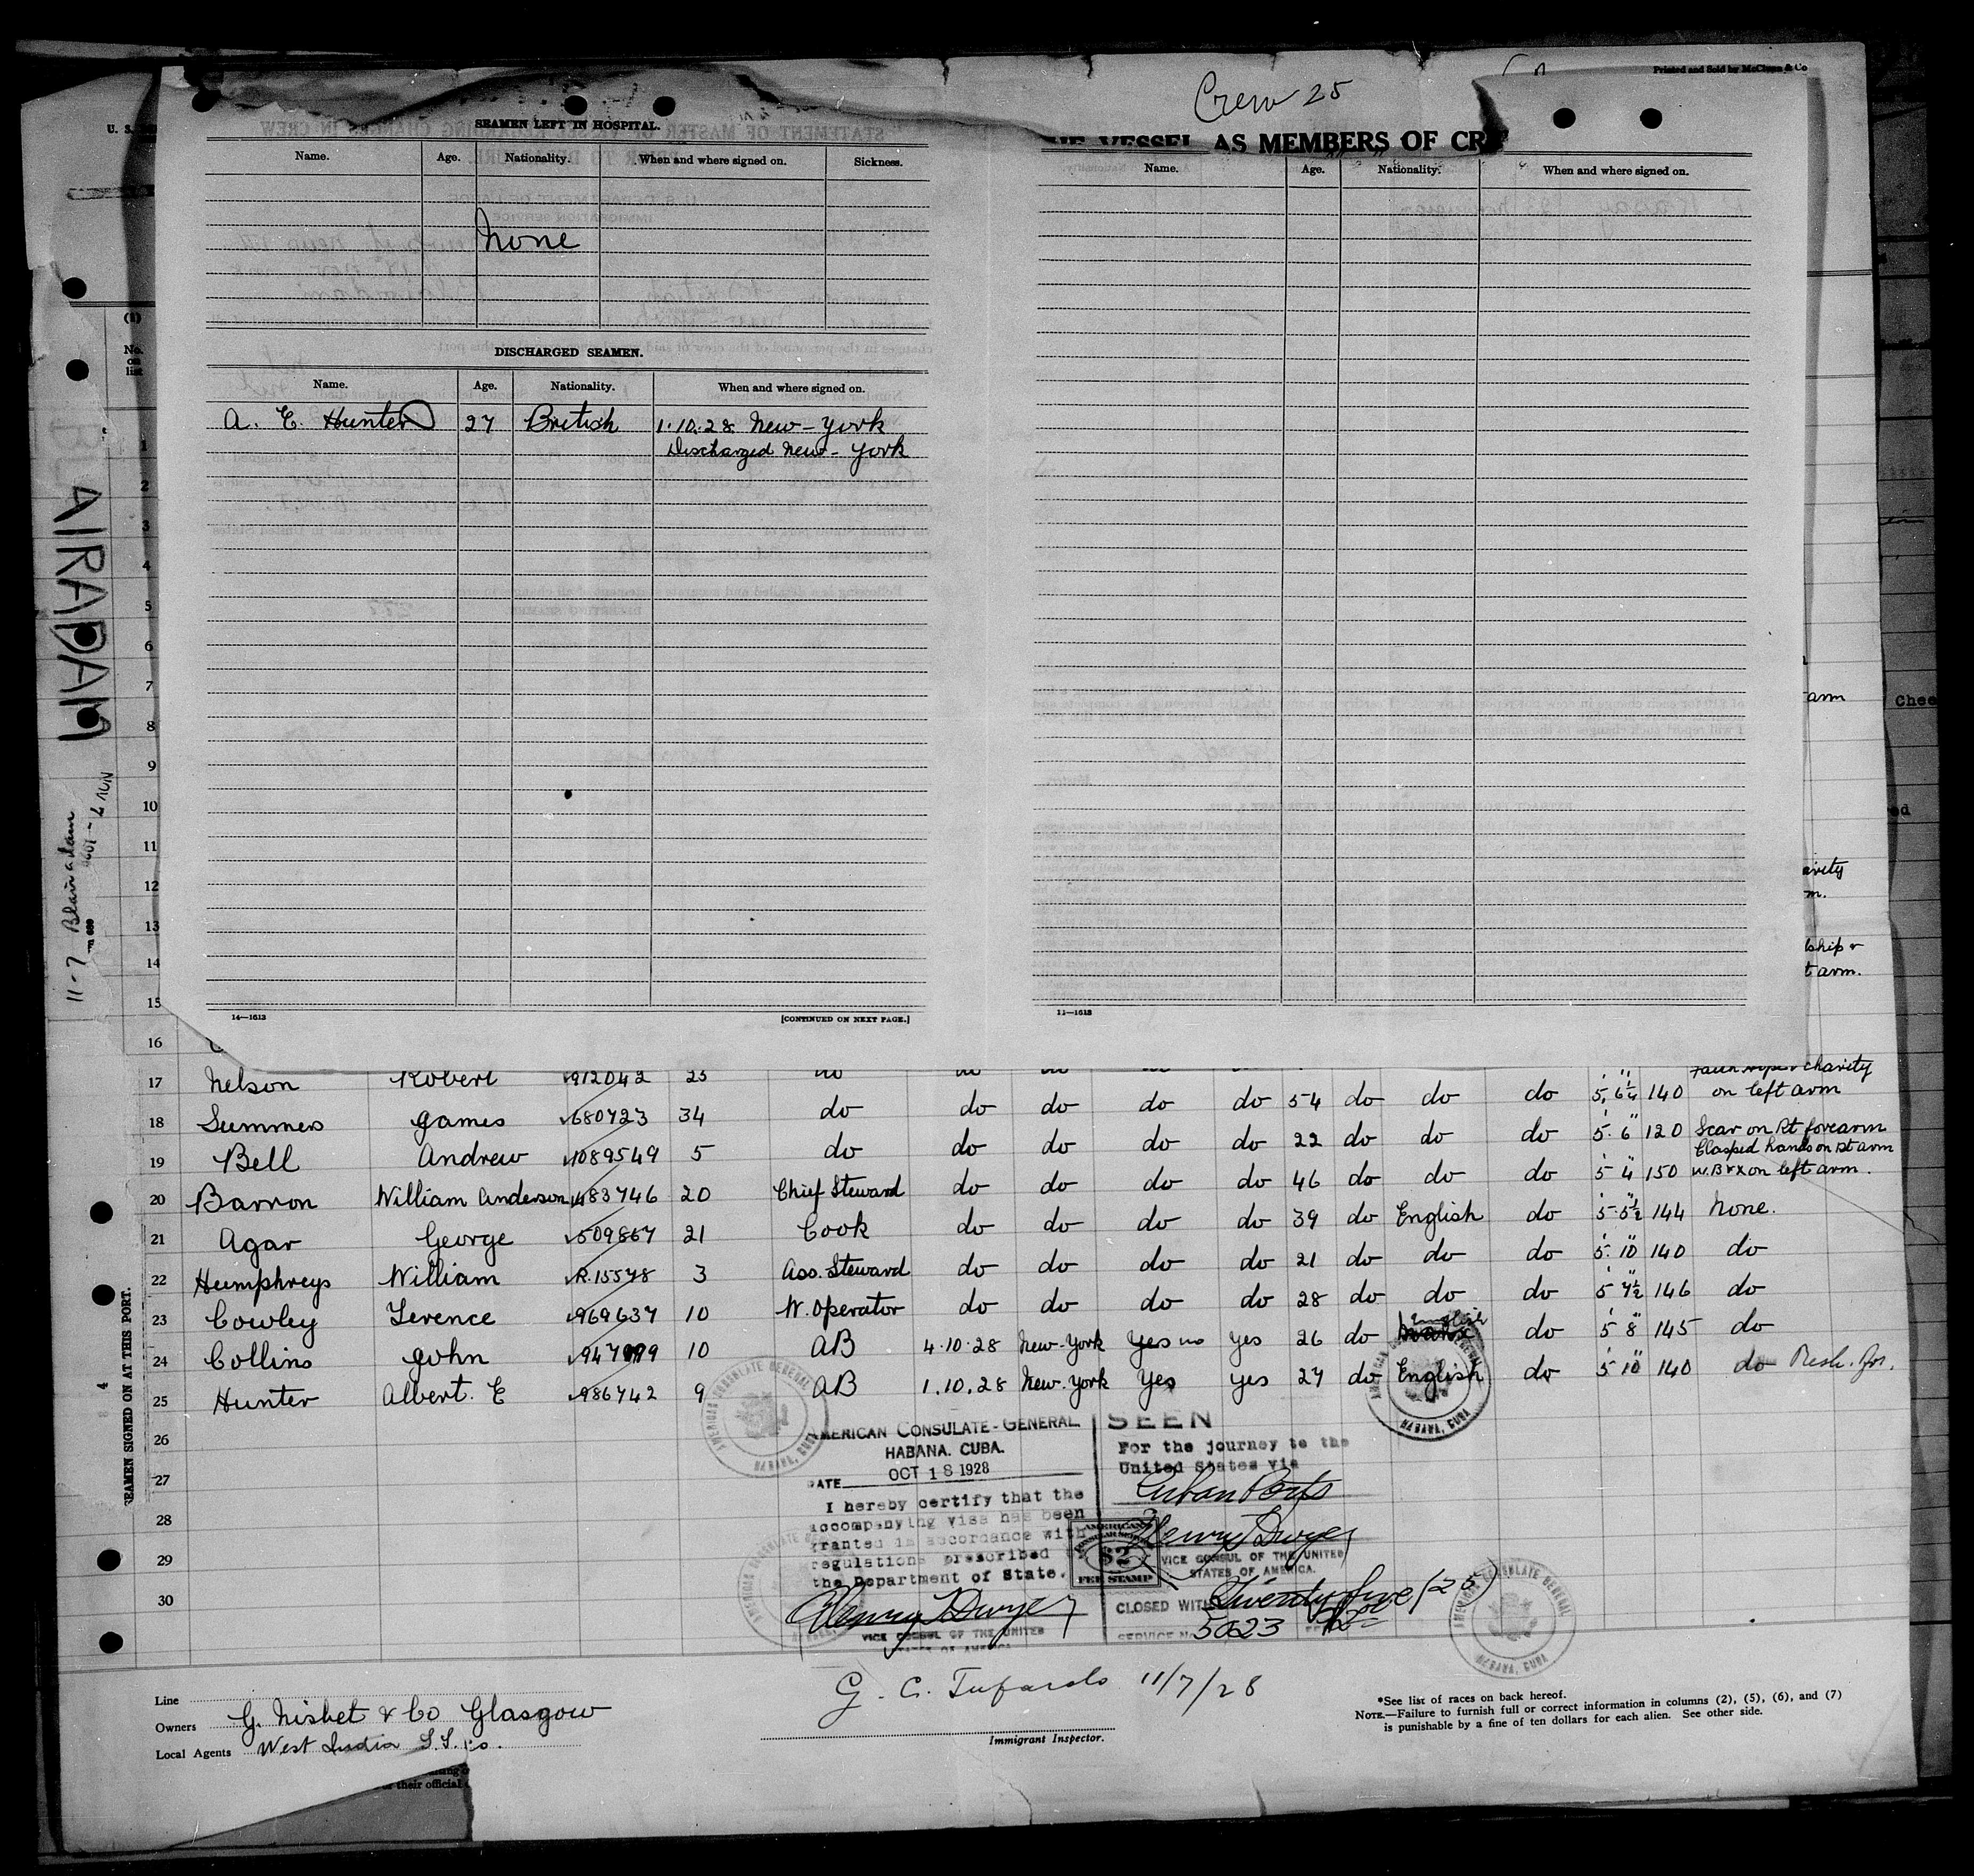 Printed and Sold by McClunn & Co
Crew 25
AS MEMBERS OF CR
SEAMEN LEFT IN HOSPITAL.
Name. Age. Nationality. When and where signed on. Sickness.
None
DISCHARGED SEAMEN.
Name. Age. Nationality. When and where signed on.
A. E. Hunter 27 British 1.10.28 New-York
Discharged New-York
14—1613 [CONTINUED ON NEXT PAGE.]
Name. Age. Nationality. When and where signed on.
11—1613
U. S.
(1)
No. on list
1
2
3
4
5
6
7
8
9
10
11
12
13
14
15
16
BLAIRADAM
11-7 Blairadam
arm
Chee
arity
m.
ship &
t arm.
17 Nelson Robert 912042 23 do do do do
Faith hope & charity
18 Summers James 680723 34 do do do do do 54 do do do 5' 6 1/4" 140 on left arm
19 Bell Andrew 1089549 5 do do do do do 22 do do do 5' 6" 120 Scar on Rt forearm
Clasped hands on Rt arm
20 Barron William Anderson 483746 20 Chief Steward do do do do 46 do do do 5' 4" 150 W.B & X on left arm.
21 Agar George 509867 21 Cook do do do do 39 do English do 5' 5 1/2" 144 None.
22 Humphreys William R.15578 3 Ass. Steward do do do do 21 do do do 5' 10" 140 do
23 Cowley Terence 969637 10 W. Operator do do do do 28 do do do 5' 7 1/2" 146 do
24 Collins John 947999 10 AB 4.10.28 New-York Yes no yes 26 do English do 5' 8" 145 do
25 Hunter Albert. E 986742 9 AB 1.10.28 New.York Yes yes 27 do English do 5' 10" 140 do
26
27
28
29
30
4
SEAMEN SIGNED ON AT THIS PORT.
AMERICAN CONSULATE-GENERAL
HABANA, CUBA.
DATE OCT 18 1928
I hereby certify that the
accompanying visa has been
granted in accordance with
regulations prescribed
the Department of State.
Henry T Dwyer
VICE CONSUL OF THE UNITED
STATES OF AMERICA
SEEN
For the journey to the
United States via
Cuban Ports
Henry T Dwyer
VICE CONSUL OF THE UNITED
STATES OF AMERICA.
CLOSED WITH Twenty five (25)
SERVICE No. 5023
AMERICAN
$2
FEE STAMP
AMERICAN CONSULATE GENERAL
HABANA, CUBA
AMERICAN CONSULATE GENERAL
HABANA, CUBA
AMERICAN CONSULATE GENERAL
HABANA, CUBA
Line
Owners G. Nisbet & Co Glasgow
Local Agents West India S.S. Co.
G. C. Tufarolo 11/7/28
Immigrant Inspector.
*See list of races on back hereof.
NOTE.—Failure to furnish full or correct information in columns (2), (5), (6), and (7)
is punishable by a fine of ten dollars for each alien. See other side.
or their official